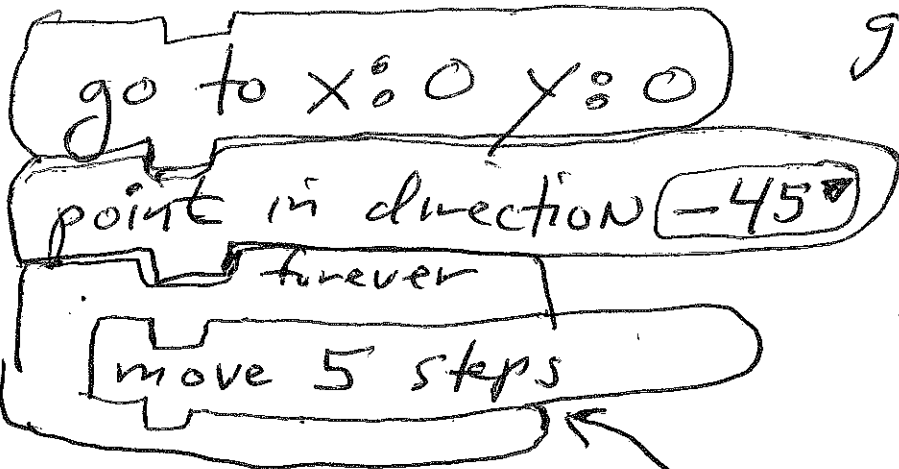 go to x: 0 y: 0
point in direction -45
forever
move 5 steps